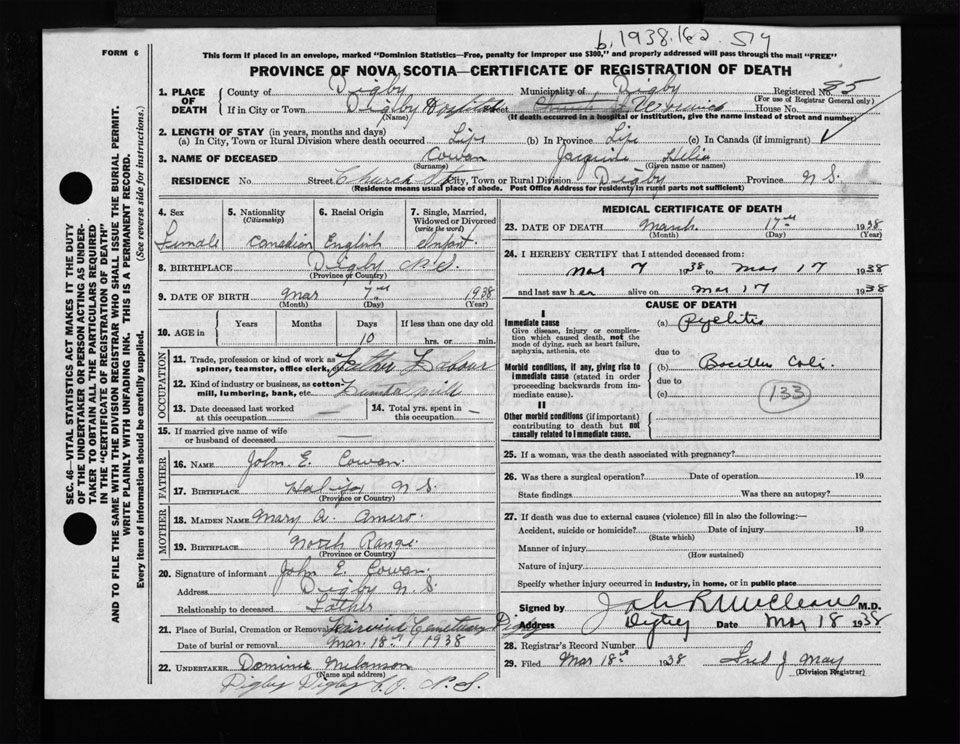 b. 1938.
FORM 6
This form if placed in an envelope, marked "Dominion Statistics—Free, penalty for improper use $300," and properly addressed will pass through the mail "FREE"
PROVINCE OF NOVA SCOTIA—CERTIFICATE OF REGISTRATION OF DEATH
1. PLACE OF DEATH County of Digby Municipality of Digby Registered No. 85
(For use of Registrar General only)
If in City or Town Digby Street House No.
(Name) (If death occurred in a hospital or institution, give the name instead of street and number)
2. LENGTH OF STAY (in years, months and days)
(a) In City, Town or Rural Division where death occurred Life (b) In Province Life (c) In Canada (if immigrant)
3. NAME OF DECEASED Cowan
(Surname) (Given name or names)
RESIDENCE No. Street Church St City, Town or Rural Division Digby Province N S.
(Residence means usual place of abode. Post Office Address for residents in rural parts not sufficient)
4. Sex Female
5. Nationality (Citizenship) Canadian
6. Racial Origin English
7. Single, Married, Widowed or Divorced (write the word) Infant
8. BIRTHPLACE Digby N.S.
(Province or Country)
9. DATE OF BIRTH Mar 7 1938
(Month) (Day) (Year)
10. AGE in Years Months Days If less than one day old
10 hrs. or min.
OCCUPATION
11. Trade, profession or kind of work as spinner, teamster, office clerk, etc. Father Labour
12. Kind of industry or business, as cotton-mill, lumbering, bank, etc. mill
13. Date deceased last worked at this occupation
14. Total yrs. spent in this occupation
15. If married give name of wife or husband of deceased
FATHER
16. NAME John E. Cowan
17. BIRTHPLACE Halifax N S.
(Province or Country)
MOTHER
18. MAIDEN NAME Mary A. Amero
19. BIRTHPLACE North Range
(Province or Country)
20. Signature of informant John E. Cowan
Address Digby N.S.
Relationship to deceased Father
21. Place of Burial, Cremation or Removal Cemetery Digby
Date of burial or removal Mar. 18th 1938
22. UNDERTAKER Dominic Melanson
(Name and address)
Digby Digby N.S.
MEDICAL CERTIFICATE OF DEATH
23. DATE OF DEATH March 17th 1938
(Month) (Day) (Year)
24. I HEREBY CERTIFY that I attended deceased from
Mar 7 1938 to Mar 17 1938
and last saw her alive on Mar 17 1938
CAUSE OF DEATH
I
Immediate cause
Give disease, injury or complication which caused death, not the mode of dying, such as heart failure, asphyxia, asthenia, etc
(a) Pyelitis
due to
Morbid conditions, if any, giving rise to immediate cause (stated in order proceeding backwards from immediate cause).
(b) Bacillus Coli.
due to
(c)
133
II
Other morbid conditions (if important) contributing to death but not causally related to immediate cause.
25. If a woman, was the death associated with pregnancy?
26. Was there a surgical operation? Date of operation 19
State findings Was there an autopsy?
27. If death was due to external causes (violence) fill in also the following:—
Accident, suicide or homicide? Date of injury 19
(State which)
Manner of injury
(How sustained)
Nature of injury
Specify whether injury occurred in industry, in home, or in public place
Signed by M.D.
Address Digby Date Mar 18 1938
28. Registrar's Record Number
29. Filed Mar 18th 1938 Fred J. May
(Division Registrar)
SEC. 46—VITAL STATISTICS ACT MAKES IT THE DUTY
OF THE UNDERTAKER OR PERSON ACTING AS UNDER-
TAKER TO OBTAIN ALL THE PARTICULARS REQUIRED
IN THE "CERTIFICATE OF REGISTRATION OF DEATH"
AND TO FILE THE SAME WITH THE DIVISION REGISTRAR WHO SHALL ISSUE THE BURIAL PERMIT.
WRITE PLAINLY WITH UNFADING INK. THIS IS A PERMANENT RECORD.
Every item of information should be carefully supplied. (See reverse side for instructions.)